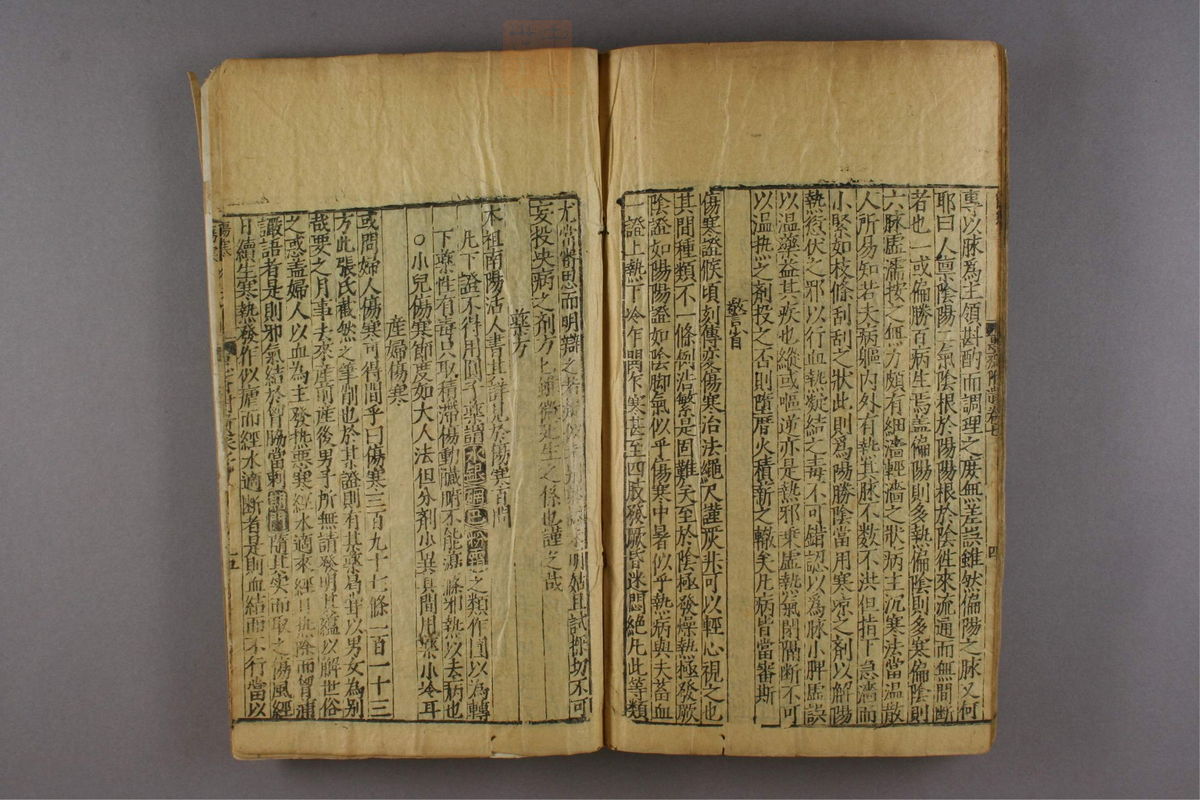 專以脉為主領斟酌而調理之度無差誤雖然偏陽之脉又何
耶曰人禀陰陽二氣陰根於陽陽根於陰往來流通而無間斷
者也一或偏勝百病生焉蓋偏陽則多熱偏陰則多寒偏陰則
六脉虛濡按之無力頗有細濇輕濇之狀病主沉寒法當温散
人所易知若夫病軀内外有熱其脉不数不洪但指下急濇而
小緊如枝條刮刮之狀此則爲陽勝陰當用寒凉之劑以解陽
熱後伏之邪以行血熱凝結之毒不可錯認以為脉小脾虛誤
以温藥益其疾也縱或嘔逆亦是熱邪乗虛熱氣閉隔斷不可
以温熱之剤投之否則墮曆火積薪之轍矣凡病皆當審斯
傷寒證候頃刻傳变傷寒治法繩尺謹嚴非可以輕心視之也
其間種類不一條例浩繁是固難矣至於陰極發燥熱極發厥
陰證如陽陽證如陰脚氣似乎傷寒中暑似乎熱病與夫蓄血
一證上熱下冷作悶乍寒甚至四肢發厥皆迷悶絶凡此等類
尤當審思而明辯之
妄投决病之剤方匕通微死生之係也謹之哉
藥方
本祖南陽活人書其詳見於傷寒百問
凡下證不得用圓子藥謂水
之類作圓以為轉
下藥性有毒只取積滞傷動臟腑不能滌除邪熱以去病也
○小兒傷寒節度如大人法但分剤小異其間用藥小冷耳
産婦傷寒
或問婦人傷寒可得間乎曰傷寒三百九十七條一百一十三
方此張氏截然之筆削也於某證則有某藥曷甞以男女為别
哉要之月事去來産前産後男子所無請發明其蘊以解世俗
之惑盖婦人以血為主發熱悪寒經水適來經日熱除而胷滿
讝語者是則邪氣結於胷脇當刺
隨其实而取之傷風經
日續生寒熱發作似瘧而經水適断者是則血結而不行當以